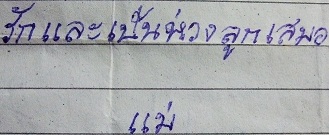 รักและเป็นห่วงลูกเสมอ
แม่